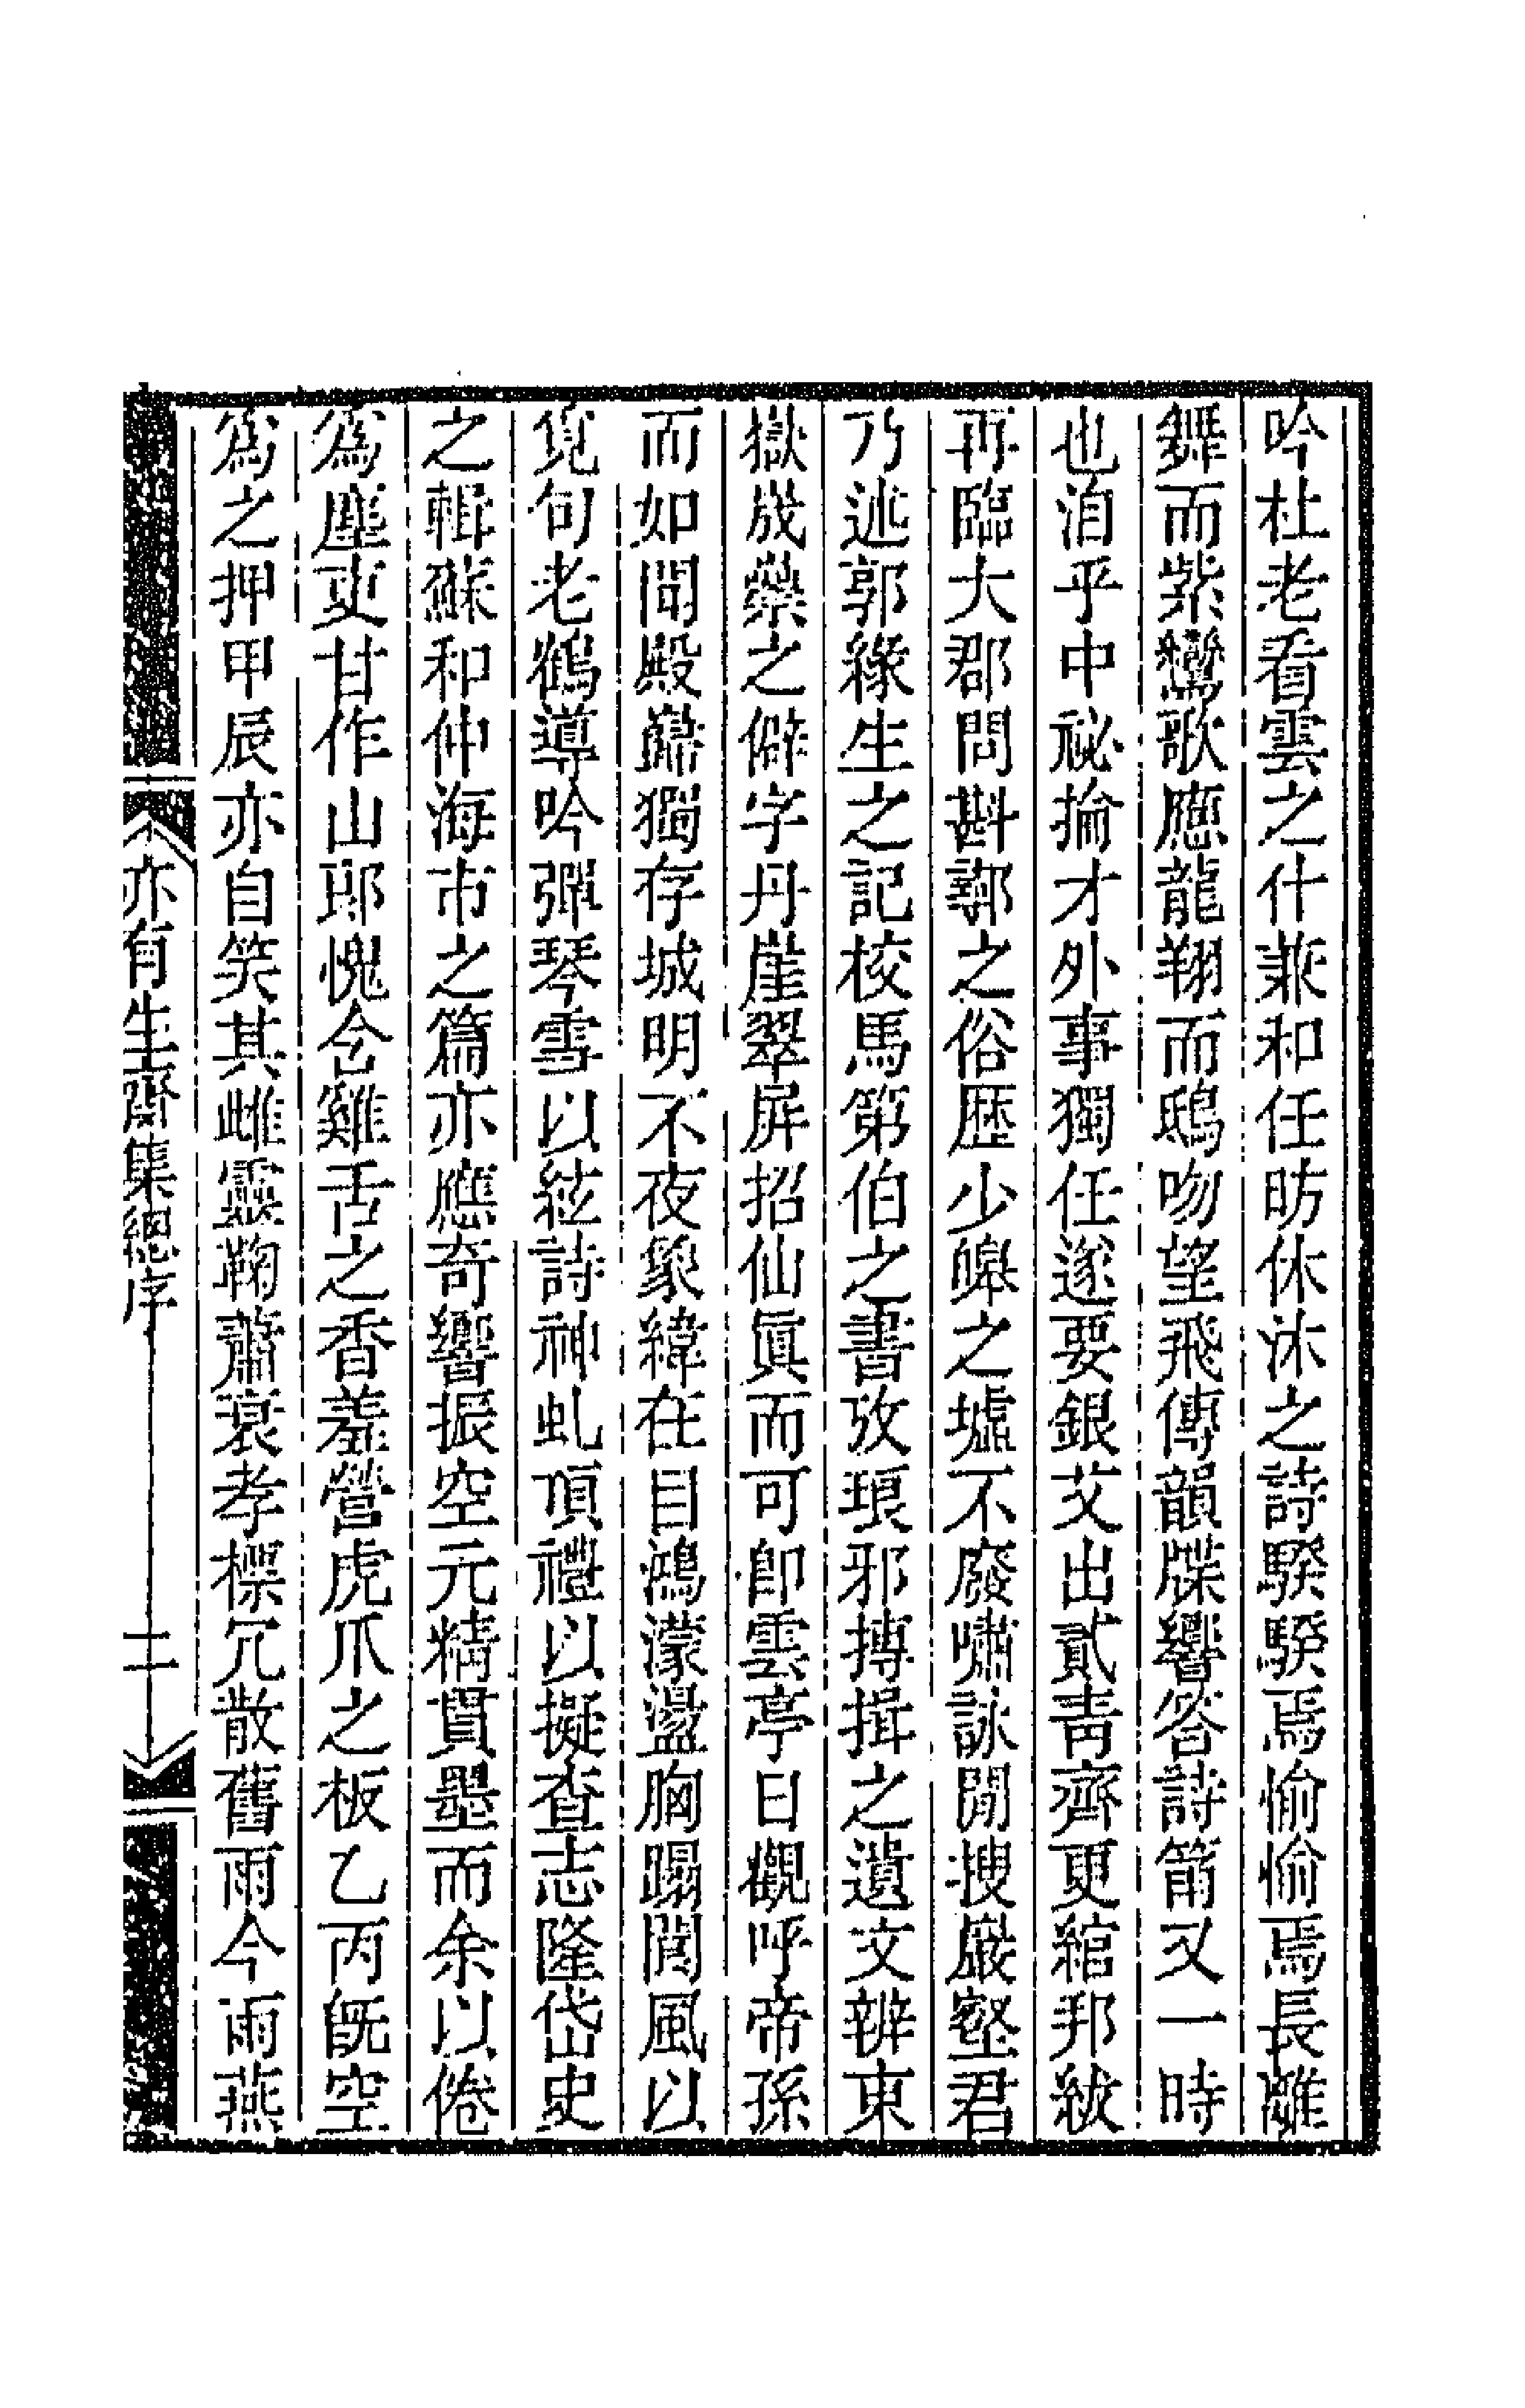 吟杜老看雲之什兼和任昉休沐之詩騤騤焉愉愉焉長離
舞而紫鸞歌應龍翔而鴟吻望飛傳韻牒響答詩筩又一時
也洎乎中祕掄才外事獨任遂要銀艾出貳靑齊更綰邦紱
再臨大郡問斟鄩之俗歷少皞之墟不廢嘯詠閒搜巖壑君
乃述郭緣生之記校馬第伯之書攷琅邪搏揖之遺文辨東
嶽成藥之僻字丹崖翠屛招仙眞而可卽雲亭日觀呼帝孫
而如聞殿巋獨存城明不夜象緯在目鴻濛盪胸蹋閬風以
覓句老鶴導吟彈琴雪以絃詩神虬頂禮以擬查志隆岱史
之輯蘇和仲海市之篇亦應奇響振空元精貫墨而余以倦
爲塵吏甘作山郎愧含雞舌之香羞營虎爪之板乙丙旣空
爲之押甲辰亦自笑其雌靈鞠蕭衰孝標冗散舊雨今雨燕
亦有生齋集總序　二